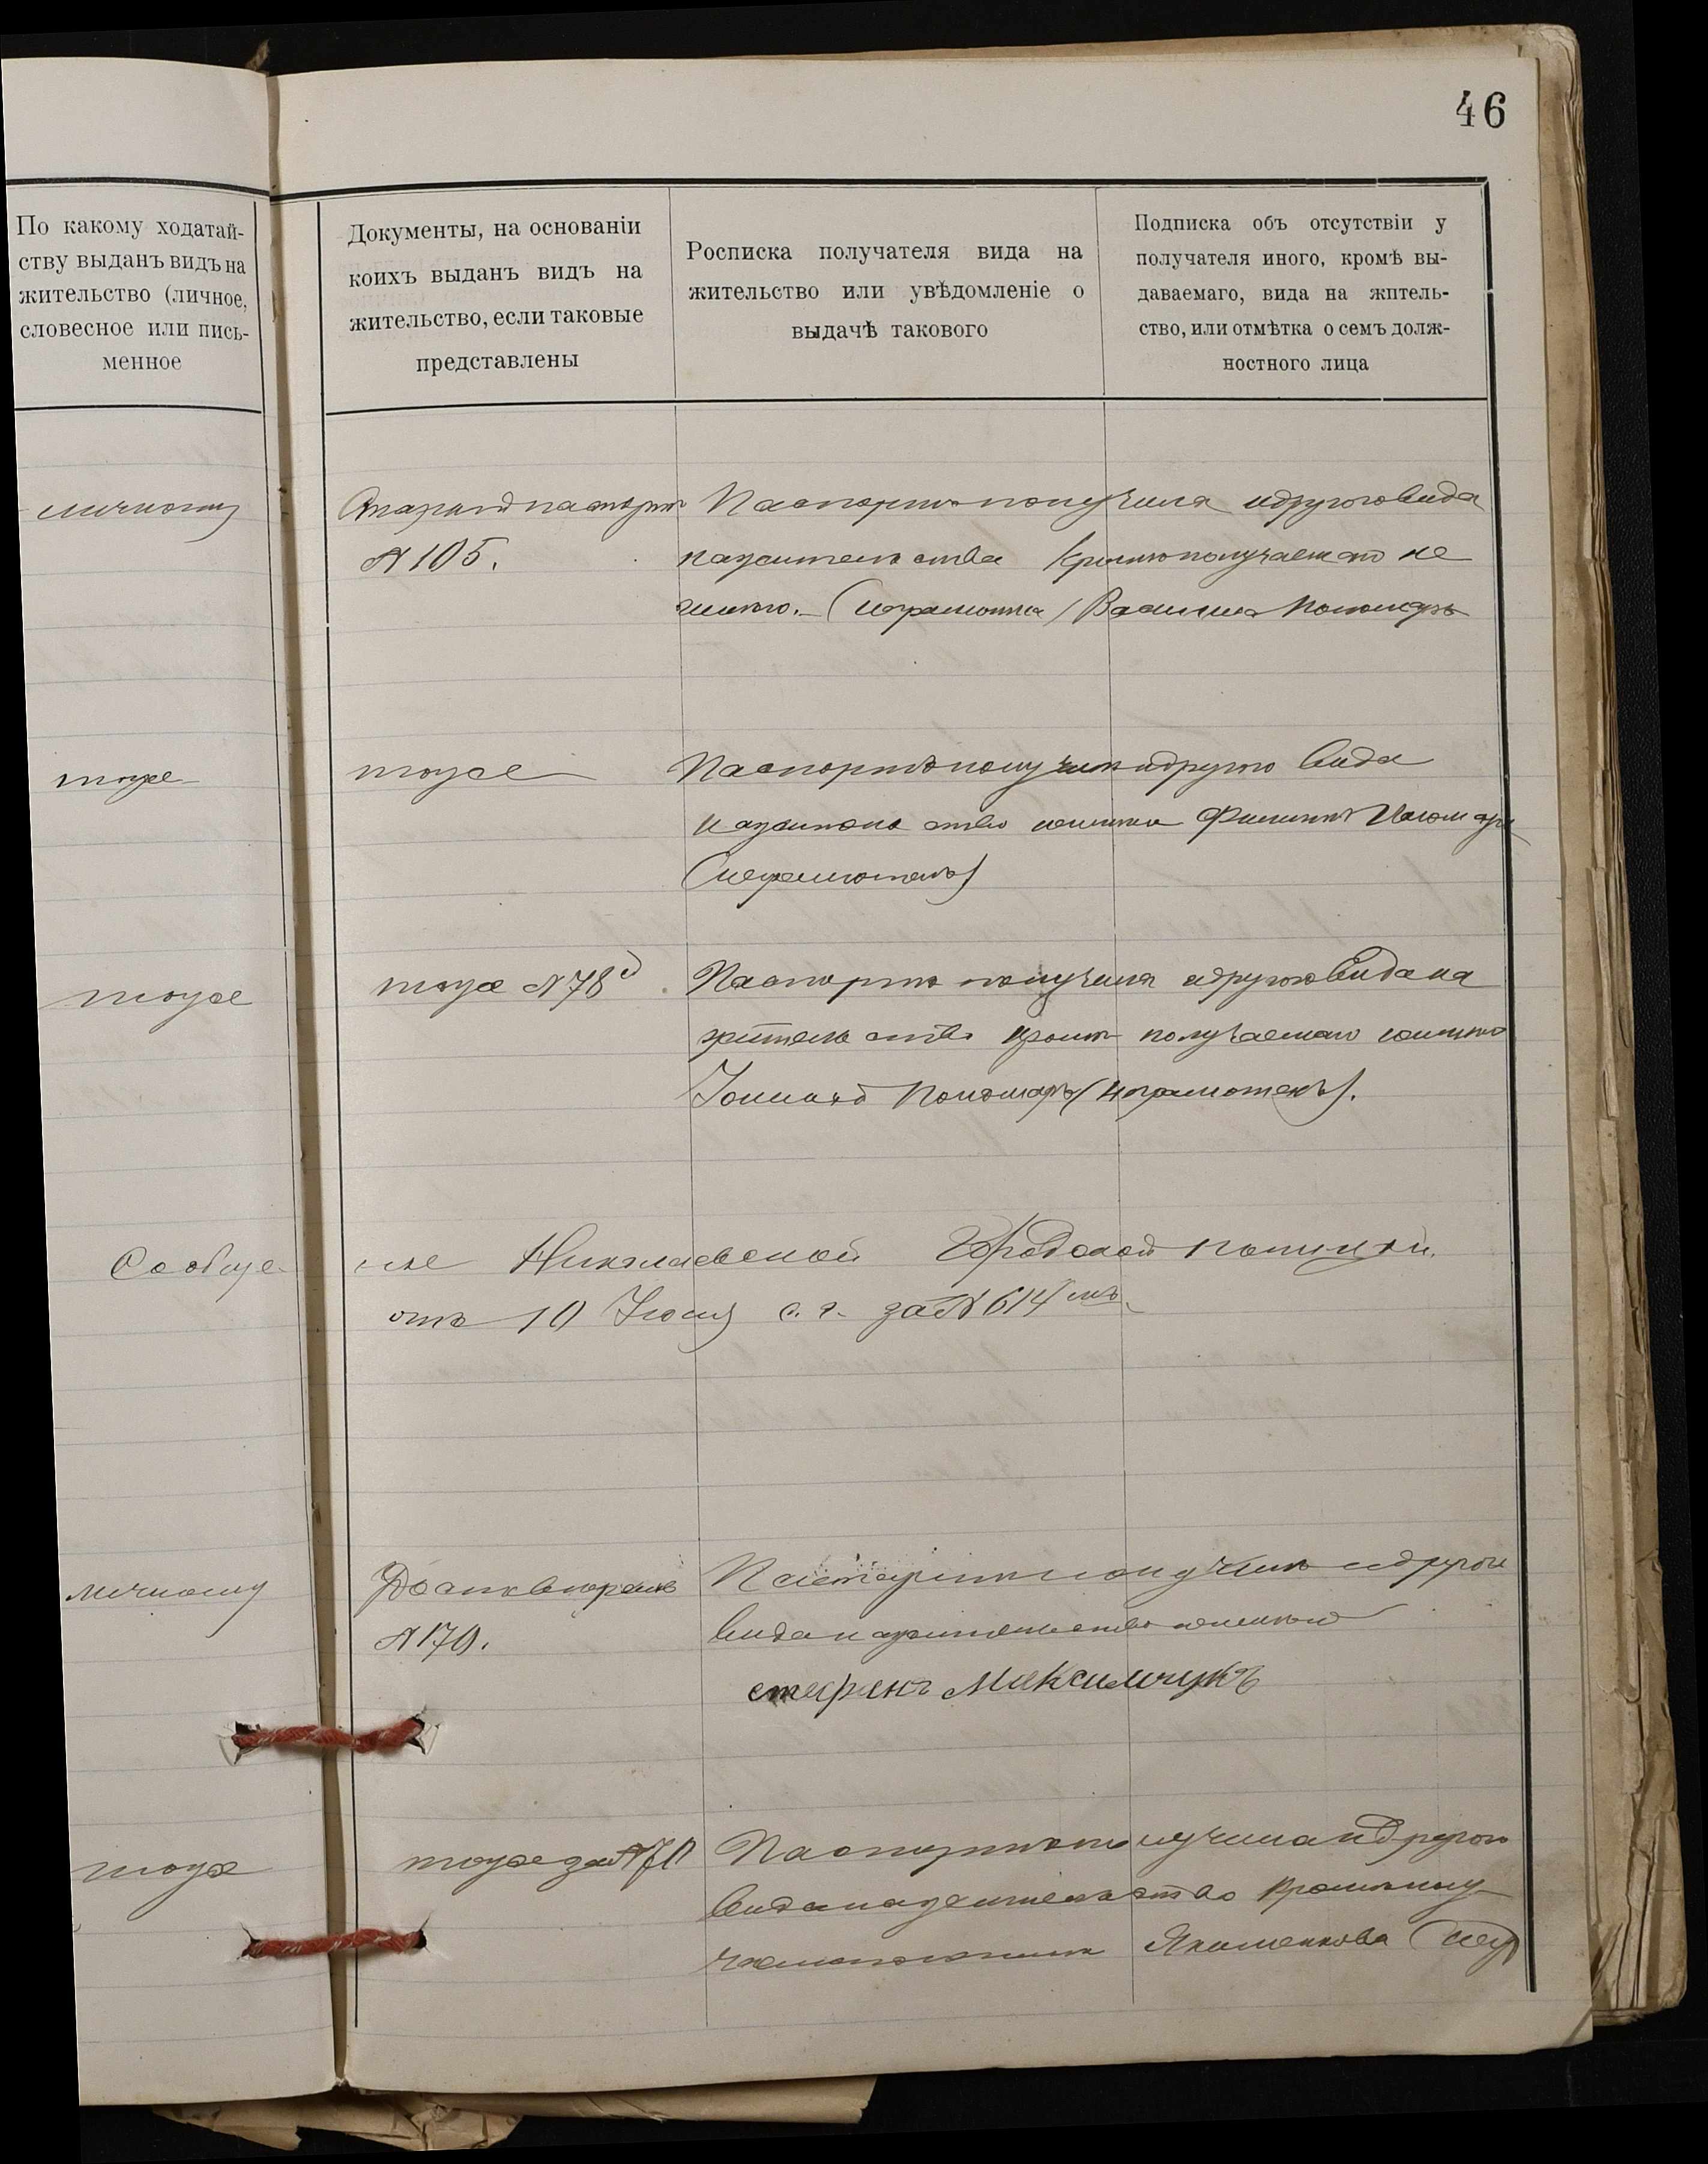 46
По какому ходатай-
ству выданъ видъ на
жительство (личное,
словесное или пись-
менное
Документы, на основаніи
коихъ выданъ видъ на
жительство, если таковые
представлены
Росписка получателя вида на
жительство или увѣдомленіе о
выдачѣ такового
Подписка объ отсутствіи у
получателя иного, кромѣ вы-
даваемаго, вида на жптель-
ство, или отмѣтка о семъ долж-
ностного лица
личному
Старый паспортъ
N 105.
Паспортъ получила и другого вида
на жительство кромѣ получаемаго не
имѣю. (неграмотна) Васили Пономарь
тоже
тоже
Паспортъ получилъ и другого вида
на жительство не имѣю Филиппъ Пономарь
(неграмотенъ)
тоже
тоже N 78
Паспортъ получилъ и другого вида на
жительство кромѣ получаемаго не имѣю
Пономарь (неграмотенъ).
Сообще ніе Николаевской Городской полиціи
отъ 10 Іюня с. г. за N 614
личному
N 170.
Паспортъ получилъ и другого
вида на жительство не имѣю
стефанъ Максимчукъ
тоже
тоже за N 70
Паспортъ получила и другого
вида на жительство кромѣ
Якименкова (негр)